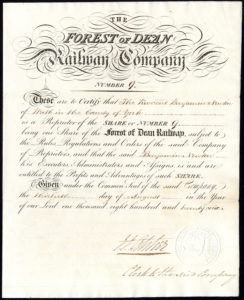 THE
FOREST OF DEAN
Railway Company
NUMBER 9.
These are to Certify that The Reverend Benjamin
of in the County of York
is a Proprietor of the SHARE or NUMBER 9.
being one Share of the Forest of Dean Railway, subject to
the Rules Regulations and Orders of the said Company
of Proprietors, and that the said Benjamin
his Executors Administrators and Assigns is and are
entitled to the Profits and Advantages of such SHARE.
Given under the Common Seal of the said Company, the
day of August in the Year
of our Lord one thousand eight hundred and twenty six
Clerk to the said Company